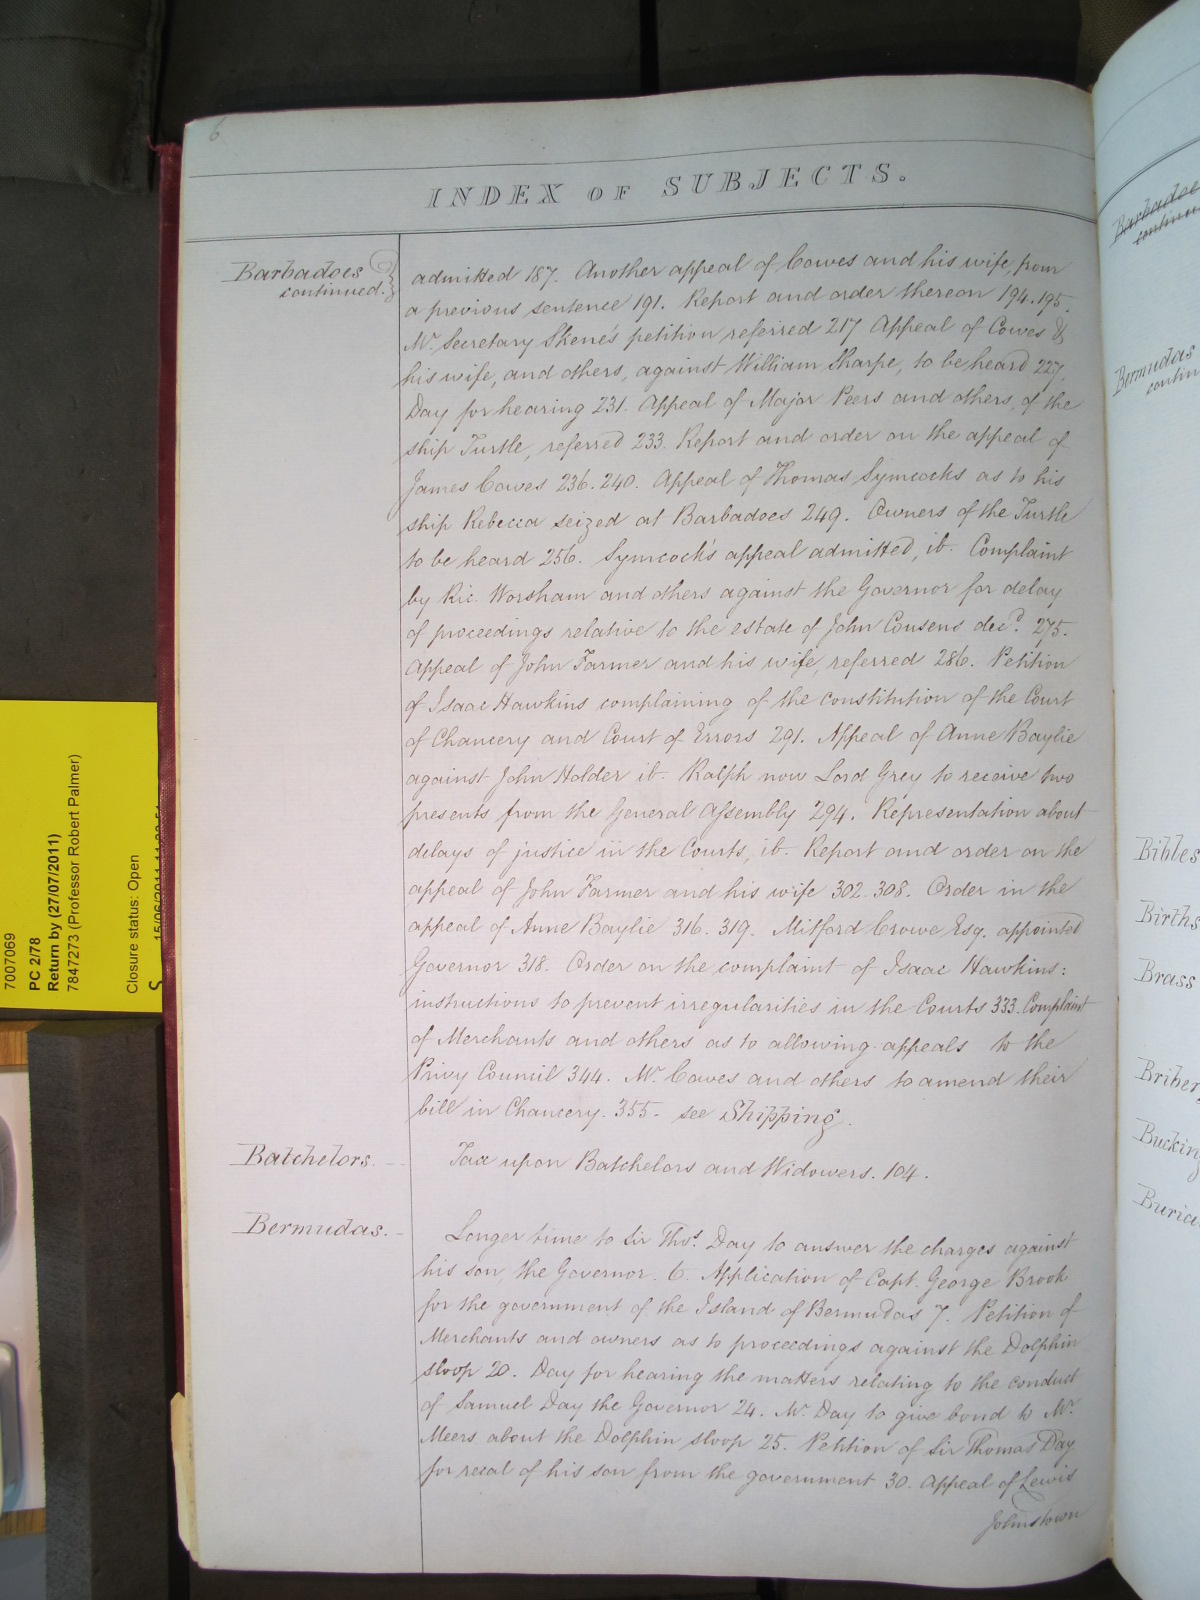 6
INDEX OF SUBJECTS.
Barbadoes
continued.
admitted 187. Another appeal of Cowes and his wife from
a previous sentence 191. Report and order thereon 194. 195.
Mr. Secretary Skene's petition referred 217 Appeal of Cowes &
his wife, and others, against William Sharpe, to be heard 227.
Day for hearing 231. Appeal of Major Peers and others, of the
ship Turtle, referred 233. Report and order on the appeal of
James Cowes 236. 240. Appeal of Thomas Symcocks as to his
ship Rebecca seized at Barbadoes 249. Owners of the Turtle
to be heard 256. Symcock's appeal admitted, ib. Complaint
by Ric. Worsham and others against the Governor for delay
of proceedings relative to the estate of John Cousens decd. 275.
Appeal of John Farmer and his wife, referred 286. Petition
of Isaac Hawkins complaining of the constitution of the Court
of Chancery and Court of Errors 291. Appeal of Anne Baylie
against John Holder ib. Ralph now Lord Grey to receive two
presents from the General Assembly 294. Representation about
delays of justice in the Courts, ib. Report and order on the
appeal of John Farmer and his wife 302. 308. Order in the
appeal of Anne Baylie 316. 319. Mitford Crowe Esq. appointed
Governor 318. Order on the complaint of Isaac Hawkins:
instructions to prevent irregularities in the Courts 333. Complaint
of Merchants and others as to allowing appeals to the
Privy Council 344. Mr. Cowes and others to amend their
bill in Chancery. 355. see Shipping.
Batchelors.
Tax upon Batchelors and Widowers. 104.
Bermudas.
Longer time to Sir Thos. Day to answer the charges against
his son, the Governor. 6. Application of Capt. George Brook
for the government of the Island of Bermudas 7. Petition of
Merchants and owners as to proceedings against the Dolphin
sloop 20. Day for hearing the matters relating to the conduct
of Samuel Day the Governor 24. Mr. Day to give bond to Mr.
Meers about the Dolphin sloop 25. Petition of Sir Thomas Day
for recal of his son from the government 30. Appeal of Lewis
Johnstown
Barbadoes
continued
Bermudas
contin
Bibles
Births
Brass
Briber
Bucking
Buria
7007069
PC 2/78
Return by (27/07/2011)
7847273 (Professor Robert Palmer)
Closure status: Open
S